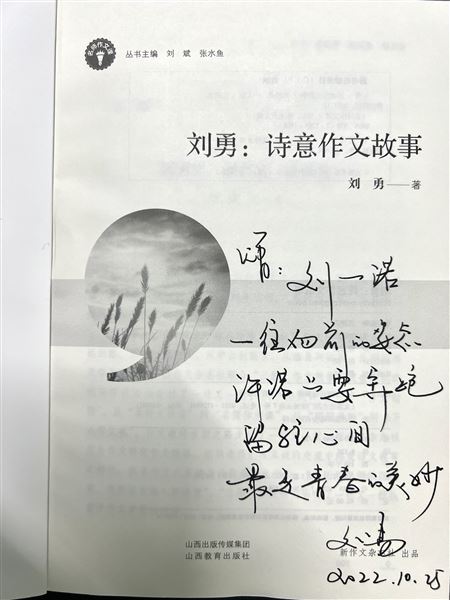 名师作文课
丛书主编 刘 斌 张水鱼
刘勇：诗意作文故事
刘 勇——著
赠：刘一诺
一往向前的姿态
许诺只要奔跑
留驻心间
最是青春的美妙
刘勇
山西出版传媒集团
山西教育出版社
新作文杂志社 出品
2022.10.25